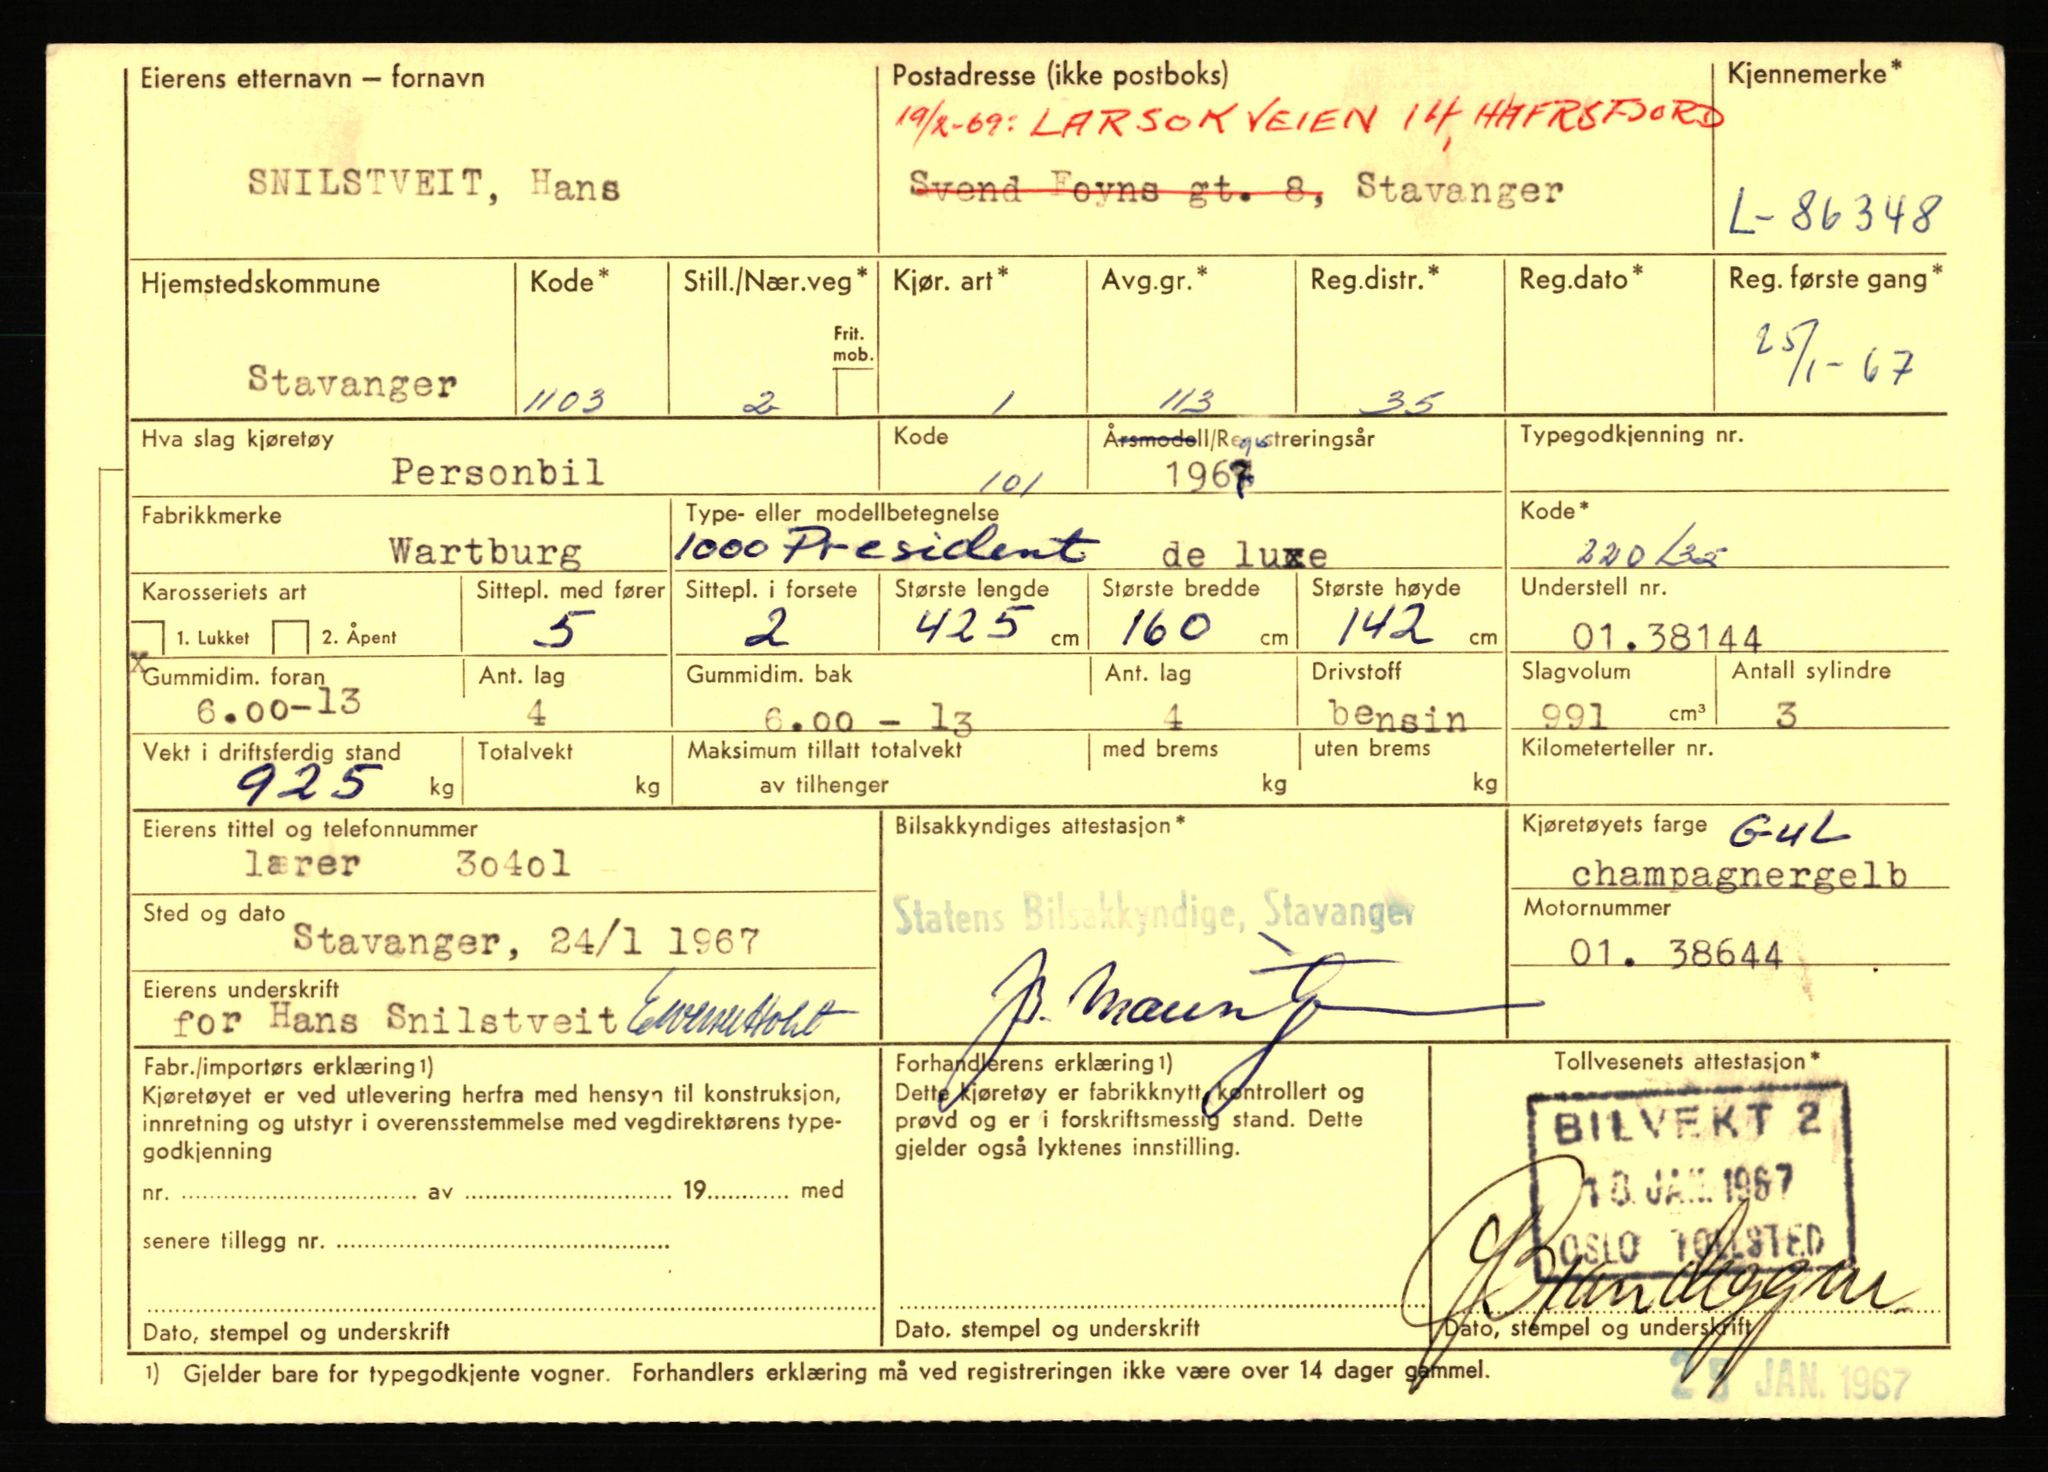 Eierens etternavn – fornavn
SNILSTVEIT, Hans
Postadresse (ikke postboks)
19/X-69: LARSOKVEIEN 14, HAFRSFJORD
Svend Foyns gt. 8, Stavanger
Kjennemerke*
L-86348
Hjemstedskommune
Stavanger
Kode*
1103
Still./Nær.veg*
2
Frit.
mob.
Kjør. art*
1
Avg.gr.*
113
Reg.distr.*
35
Reg.dato*
Reg. første gang*
25/1-67
Hva slag kjøretøy
Personbil
Kode
101
Årsmodell/Registreringsår
1967
Typegodkjenning nr.
Fabrikkmerke
Wartburg
Type- eller modellbetegnelse
1000 President de luxe
Kode*
220
Karosseriets art
1. Lukket 2. Åpent
X
Sittepl. med fører
5
Sittepl. i forsete
2
Største lengde
425 cm
Største bredde
160 cm
Største høyde
142 cm
Understell nr.
01.38144
Gummidim. foran
6.00-13
Ant. lag
4
Gummidim. bak
6.00 - 13
Ant. lag
4
Drivstoff
bensin
Slagvolum
991 cm³
Antall sylindre
3
Vekt i driftsferdig stand
925 kg
Totalvekt
kg
Maksimum tillatt totalvekt
av tilhenger
med brems
kg
uten brems
kg
Kilometerteller nr.
Eierens tittel og telefonnummer
lærer 30401
Bilsakkyndiges attestasjon*
Statens Bilsakkyndige, Stavanger
Kjøretøyets farge GUL
champagnergelb
Sted og dato
Stavanger, 24/1 1967
Motornummer
01. 38644
Eierens underskrift
for Hans Snilstveit
Fabr./importørs erklæring1)
Kjøretøyet er ved utlevering herfra med hensyn til konstruksjon,
innretning og utstyr i overensstemmelse med vegdirektørens type-
godkjenning
nr. av 19 med
senere tillegg nr.
Dato, stempel og underskrift
Forhandlerens erklæring1)
Dette kjøretøy er fabrikknytt, kontrollert og
prøvd og er i forskriftsmessig stand. Dette
gjelder også lyktenes innstilling.
Dato, stempel og underskrift
Tollvesenets attestasjon*
BILVEKT 2
18. JAN. 1967
OSLO TOLLSTED
Dato, stempel og underskrift
1) Gjelder bare for typegodkjente vogner. Forhandlers erklæring må ved registreringen ikke være over 14 dager gammel.
25 JAN. 1967